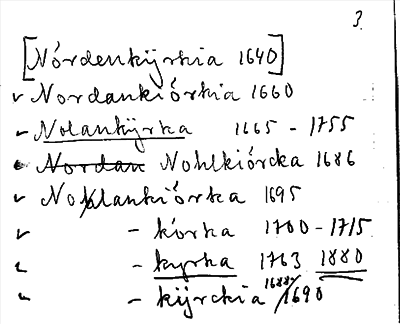 3.
[Nórdenkÿrkia 1640]
✓ Nordankiórkia 1660
✓ Nolankÿrka 1665 - 1755
• Nordan Nohlkiórcka 1686
✓ Nolankiórka 1695
✓ - kórka 1700 - 1715
✓ - kyrka 1763 1880
✓ - kÿrckia 1688/1690